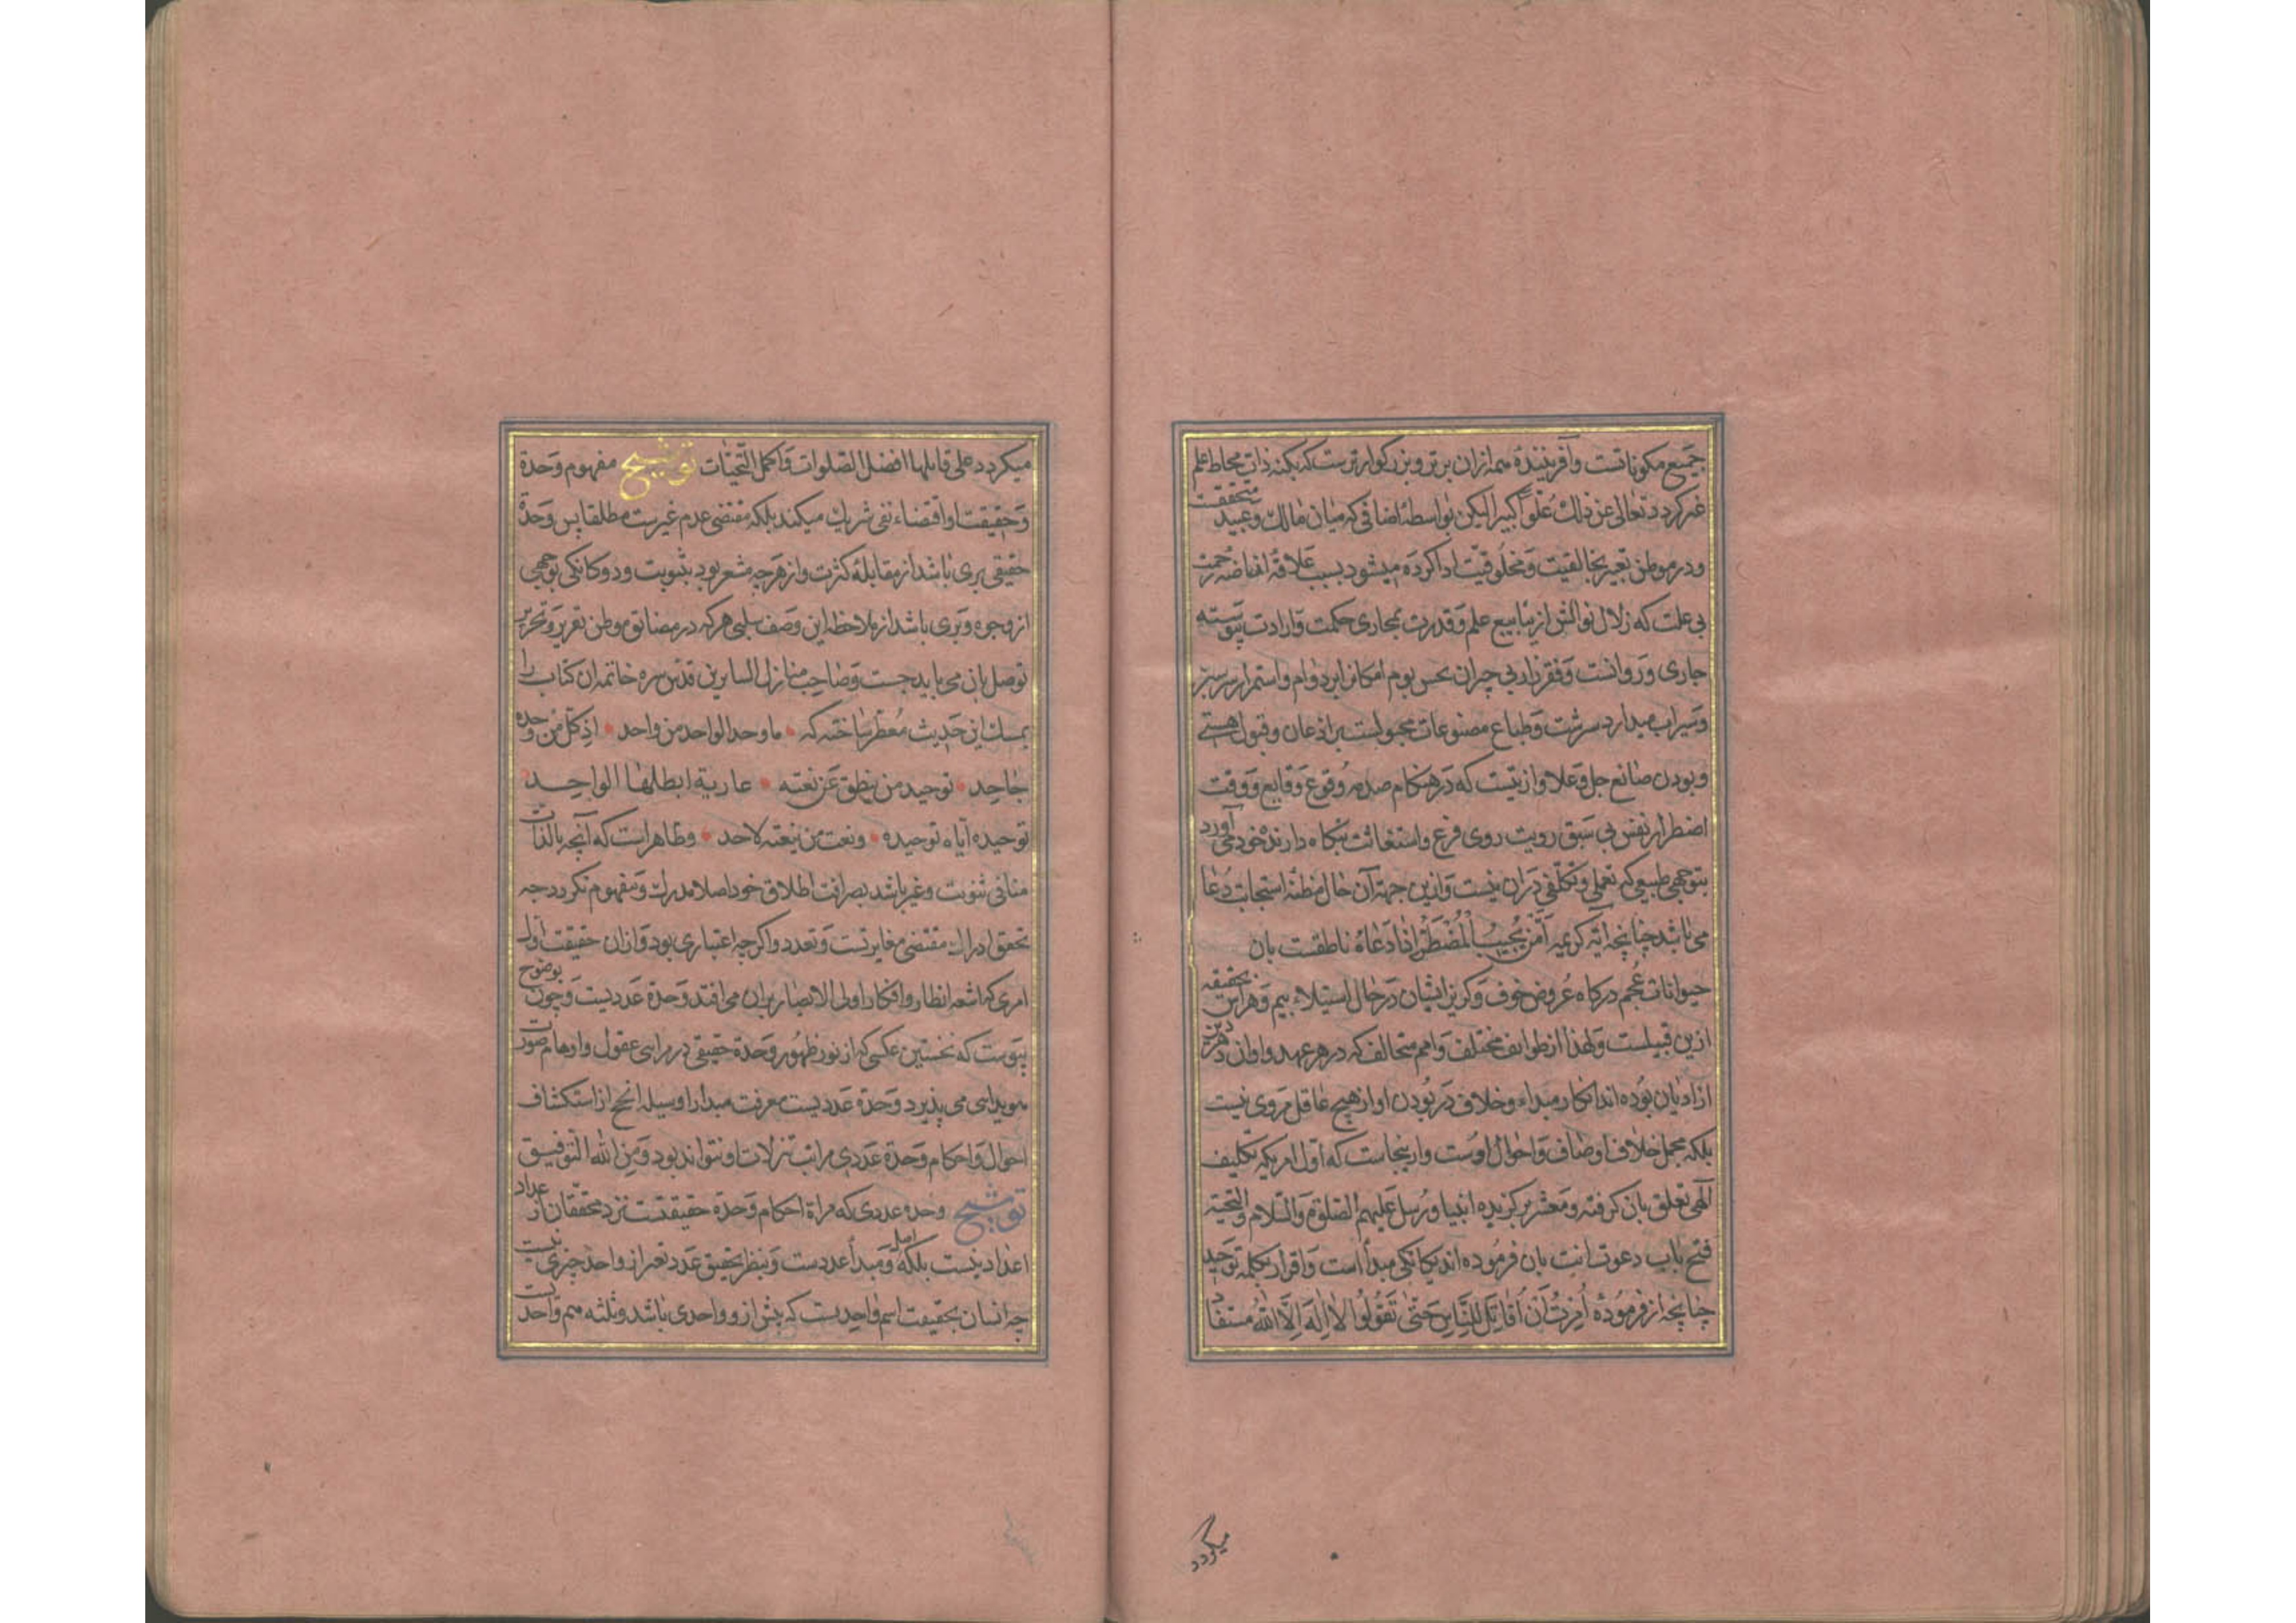 جمیع مکوناتست وآفرینندهٔ همه ازان برتر و بزرکوارترست که بکنه ذات محاط علم
غیر کردد تعالی عن ذلک علوا کبیرا لیکن بواسطهٔ اضافتی که میان مالک و عبید متحققست
و در موطن تعبیر بخالقیت و مخلوقیت ادا کرده میشود بسبب علاقهٔ افاضهٔ رحمت
بی علت که زلال نوالش از ینابیع علم و قدرت بمجاری حکمت و ارادت پیوسته
جاری و روانست و فقرزار بی چران بوم امکانرا بر دوام و استمرار سرسبز
و سیراب میدارد سرشت و طباع مصنوعات مجبولست بر اذعان و قبول هستی
و بودن صانع جل و علا و ازینست که در هنکام صدمهٔ وقوع وقایع و وقت
اضطرار نفس بی سبق رویت روی فزع و استغاثت بنکاه دارندهٔ خود می آورد
بتوجهی طبیعی که تعملی و تکلفی دران نیست و ازین جهة آن حال مظنهٔ استجابت دعا
می باشد چنانچه آیهٔ کریمه اَمَّن یُجیبُ الْمُضْطَرَّ اِذا دَعاهُ ناطقست بان
حیوانات عجم در کاه عروض خوف و کریز ایشان در حال استیلاء بیم و هراس بحقیقه
ازین قبیلست و لهذا از طوایف مختلف و امم متخالف که در هر عهد و اوان
از ادیان بوده اند انکار مبداء و خلاف در بودن او از هیچ عاقل مروی نیست
بلکه محمل خلاف اوصاف و احوال اوست و ازینجاست که اول امری که تکلیف
الهی تعلق بان کرفته و معشر برکزیده انبیا و رسل علیهم الصلوة والسلام والتحیة
فتح باب دعوت امت بان فرموده اند یکانکی مبدأ است و اقرار بکلمهٔ توحید
چنانچه از فرمودهٔ اُمِرْتُ اَنْ اُقاتِلَ النَّاسَ حَتّی تَقُولُوا لا اِلهَ اِلّا اللّه مستفاد
میکردد
میکردد علی قایلها افضل الصلوات و اکمل التحیات توشیح مفهوم وحدة
و حقیقت او اقتضاء نفی شریک میکند بلکه مقتضی عدم غیرست مطلقا پس وحدة
حقیقی بری باشد از مقابلهٔ کثرت و از هرچه مشعر بود بثنویت و دوکانکی بوجهی
از وجوه و بری باشد از ملاحظه این وصف سلبی هرکه در مضائق موطن تقریر و تحریر
توصل بان می باید جست و صاحب منازل السایرین قدس سره خاتمه ان کتاب را
بمسک این حدیث معطر ساخته که ماوحد الواحد من واحد اذ کل من وحده
جاحد توحید من ینطق عن نعته عاریة ابطلها الواحد
توحیده ایاه توحیده ونعت من ینعته لاحد و ظاهر است که آنچه بالذات
منافی ثنویت و غیر باشد بصرافت اطلاق خود اصلا مدرک و مفهوم نکردد چه
تحقق ادراک مقتضی مغایرتست و تعدد و اکرچه اعتباری بود و ازان حقیقت اول
امری که اشعهٔ انظار و افکار اولی الابصار بران می افتد وحدة عددیست و چون بوضوح
پیوست که نخستین عکسی که از نور ظهور وحدة حقیقی در مرایی عقول و اوهام صورت
هویدایی می پذیرد وحدة عددیست معرفت مبدأ را وسیلهٔ انجح از استکشاف
احوال و احکام وحدة عددی مراتب تنزلات او نتواند بود و من الله التوفیق
توشیح وحدة عددی که مرآة احکام وحدة حقیقیست نزد محققان از عداد
اعداد نیست بلکه اصل و مبدأ عددست و بنظر تحقیق عدد بغیر از واحد چیزی نیست
چه اثنان بحقیقت اسم واحدیست که پیش ازو واحدی باشد و ثلثه هم واحدیست